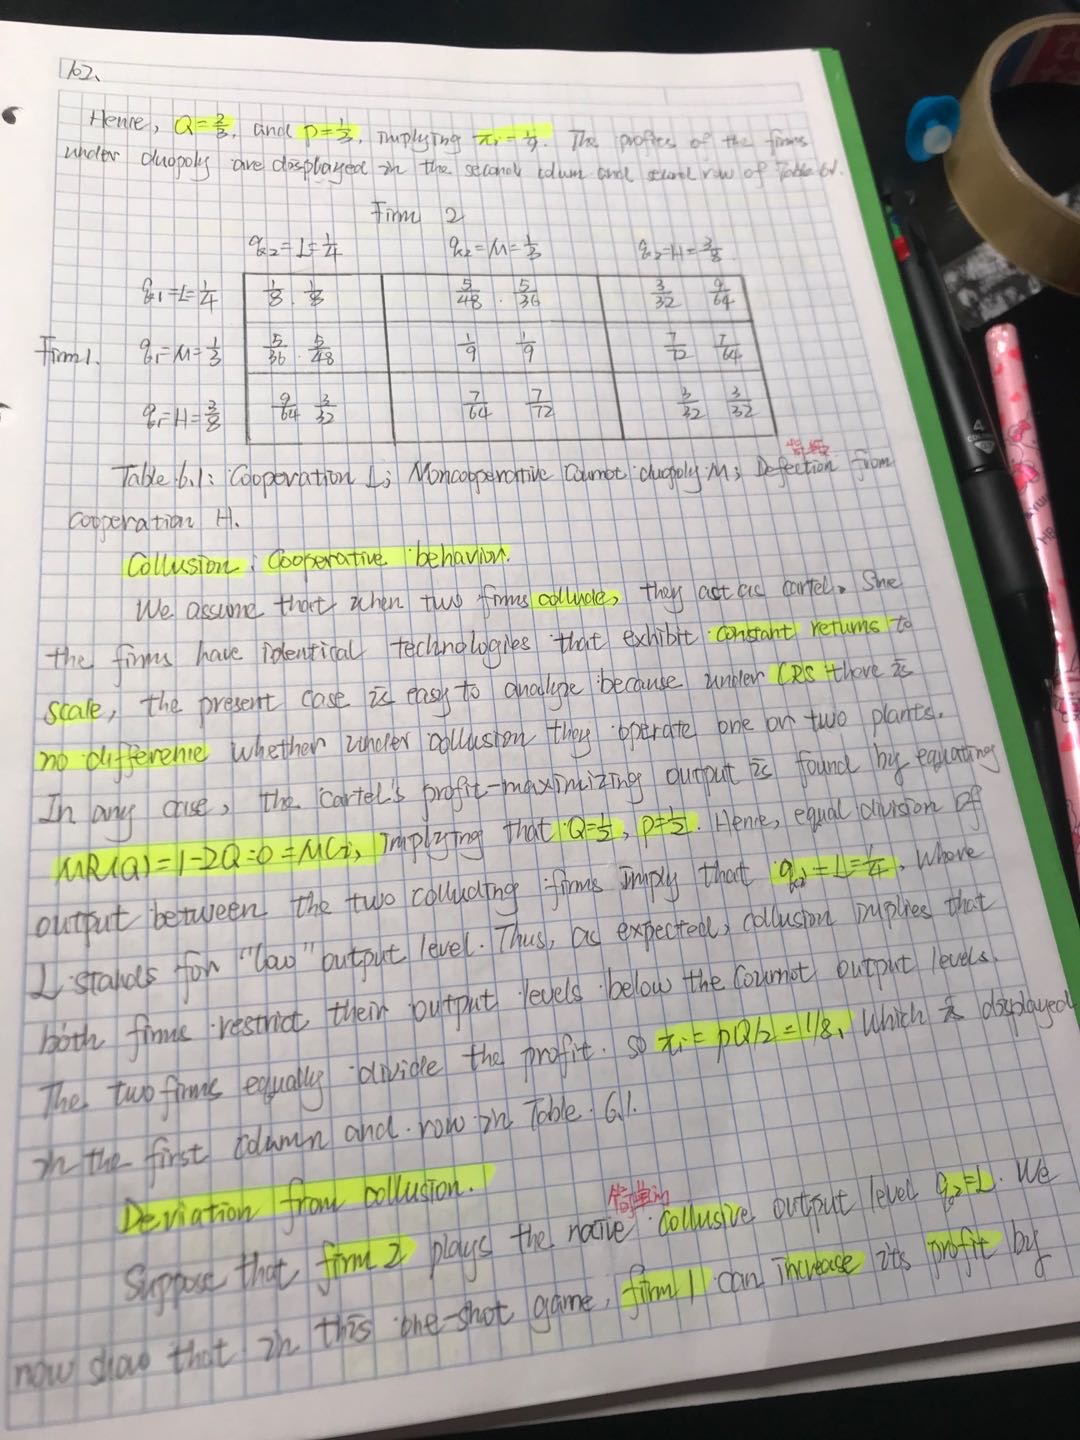 102、
Hence, Q=2/3, and p=1/3, implying πi=1/9. The profits of the firms
under duopoly are displayed in the second colum and second row of Table 6.1.
Firm 2
q2=L=1/4 q2=M=1/3 q2=H=3/8
q1=L=1/4 1/8 . 1/8 5/48 . 5/36 3/32 9/64
Firm 1. q1=M=1/3 5/36 . 5/48 1/9 1/9 7/72 7/64
q1=H=3/8 9/64 3/32 7/64 7/72 3/32 3/32
Table 6.1: Cooperation L; Noncooperative Cournot duopoly M; Defection from
cooperation H.
Collusion: Cooperative behavior.
We assume that when two firms collude, they act as cartel. Sine
the firms have identical technologies that exhibit constant returns to
scale, the present case is easy to analyze because under CRS there is
no difference whether under collusion they operate one or two plants.
In any case, the cartel's profit-maximizing output is found by equating
MR(Q)=1-2Q=0=MCi, implying that Q=1/2, p=1/2. Hence, equal division of
output between the two colluding firms imply that qi=L=1/4, where
L stands for "low" output level. Thus, as expected, collusion implies that
both firms restrict their output levels below the Cournot output levels.
The two firms equally divide the profit. so πi=pQ/2=1/8, which is displayed
in the first column and row in Table 6.1.
Deviation from collusion.
简单的
Suppose that firm 2 plays the naive collusive output level q2=L. We
now show that in this one-shot game, firm 1 can increase its profit by